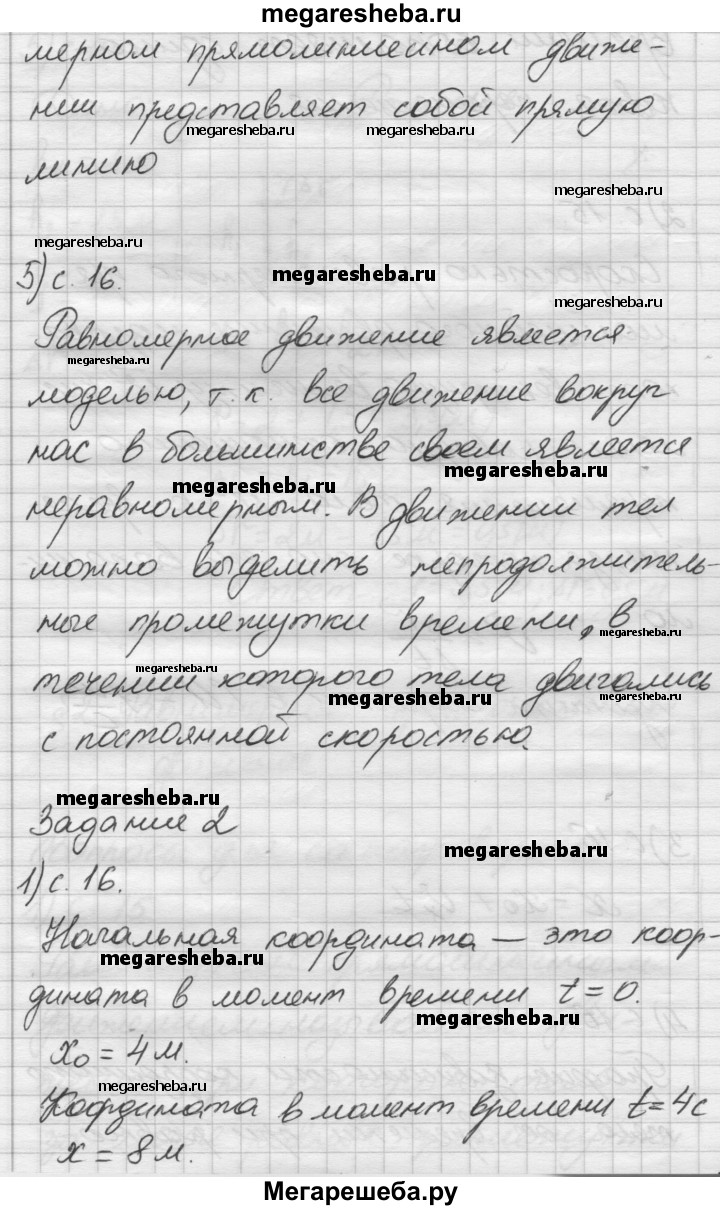 megaresheba.ru
мерном прямолинейном движе-
нии представляет собой прямую
megaresheba.ru megaresheba.ru
линию
megaresheba.ru
megaresheba.ru
5) с. 16.
megaresheba.ru
megaresheba.ru
Равномерное движение является
megaresheba.ru
моделью, т.к. все движение вокруг
нас в большинстве своем является
megaresheba.ru
megaresheba.ru
неравномерным. В движении тел
можно выделить непродолжитель-
ные промежутки времени, в
megaresheba.ru
megaresheba.ru
течении которого тела двигались
megaresheba.ru
megaresheba.ru
с постоянной скоростью.
megaresheba.ru
Задание 2
megaresheba.ru
1) с. 16.
Начальная координата — это коор-
megaresheba.ru
дината в момент времени t = 0.
megaresheba.ru
x₀ = 4 м.
megaresheba.ru
Координата в момент времени t = 4с
x = 8 м.
Мегарешеба.ру